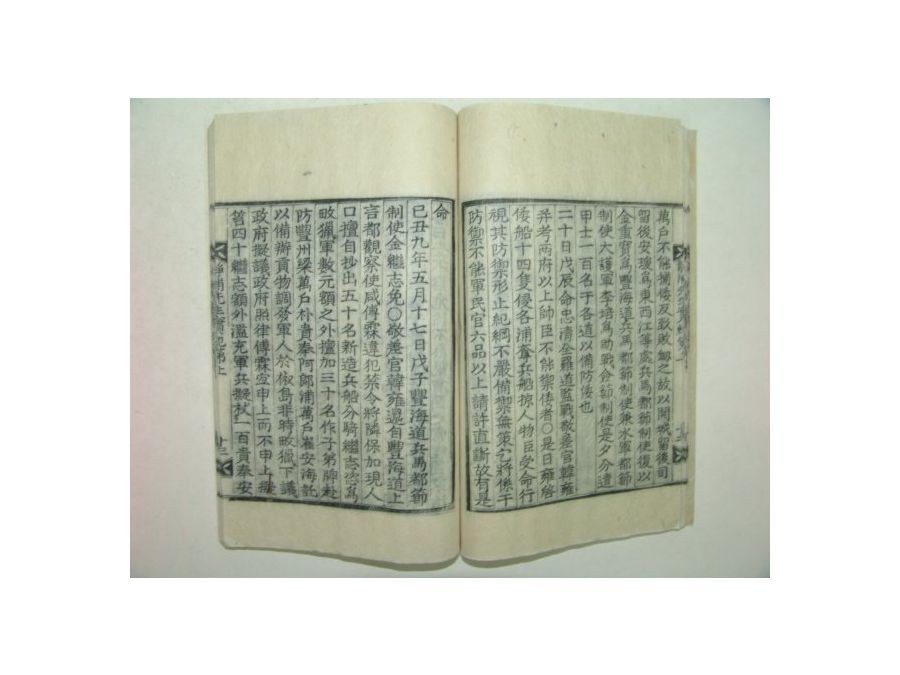 萬戶不能捕倭反致敗衂之故以開城留後司
留後安瑗爲東西江等處兵馬都節制使復以
金重寶爲豐海道兵馬都節制使兼水軍都節
制使大護軍李培爲助戰僉節制使是夕分遣
甲士一百名于各道以備防倭也
二十日戊辰命忠淸全羅道監戰敬差官韓雍
幷考兩府以上帥臣不能禦倭者○是日雍啓
倭船十四隻侵各浦奪兵船掠人物臣受命行
視其防禦形止紀綱不嚴備禦無策乞將係干
防禦不能軍民官六品以上請許直斷故有是
命
己丑九年五月十七日戊子豐海道兵馬都節
制使金繼志免○敬差官韓雍還自豐海道上
言都觀察使咸傅霖違犯禁令將隣保加現人
口擅自抄出五十名新造兵船分騎繼志恣爲
畋獵軍數元額之外擅加三十名作子弟牌赴
防豐州梁萬戶朴貴奉阿郞浦萬戶崔安海託
以備辦貢物調發軍人於椒島非時畋獵下議
政府擬議政府照律傅霖宜申上而不申上
笞四十繼志額外濫充軍兵擬杖一百貴奉安
先生實記 上